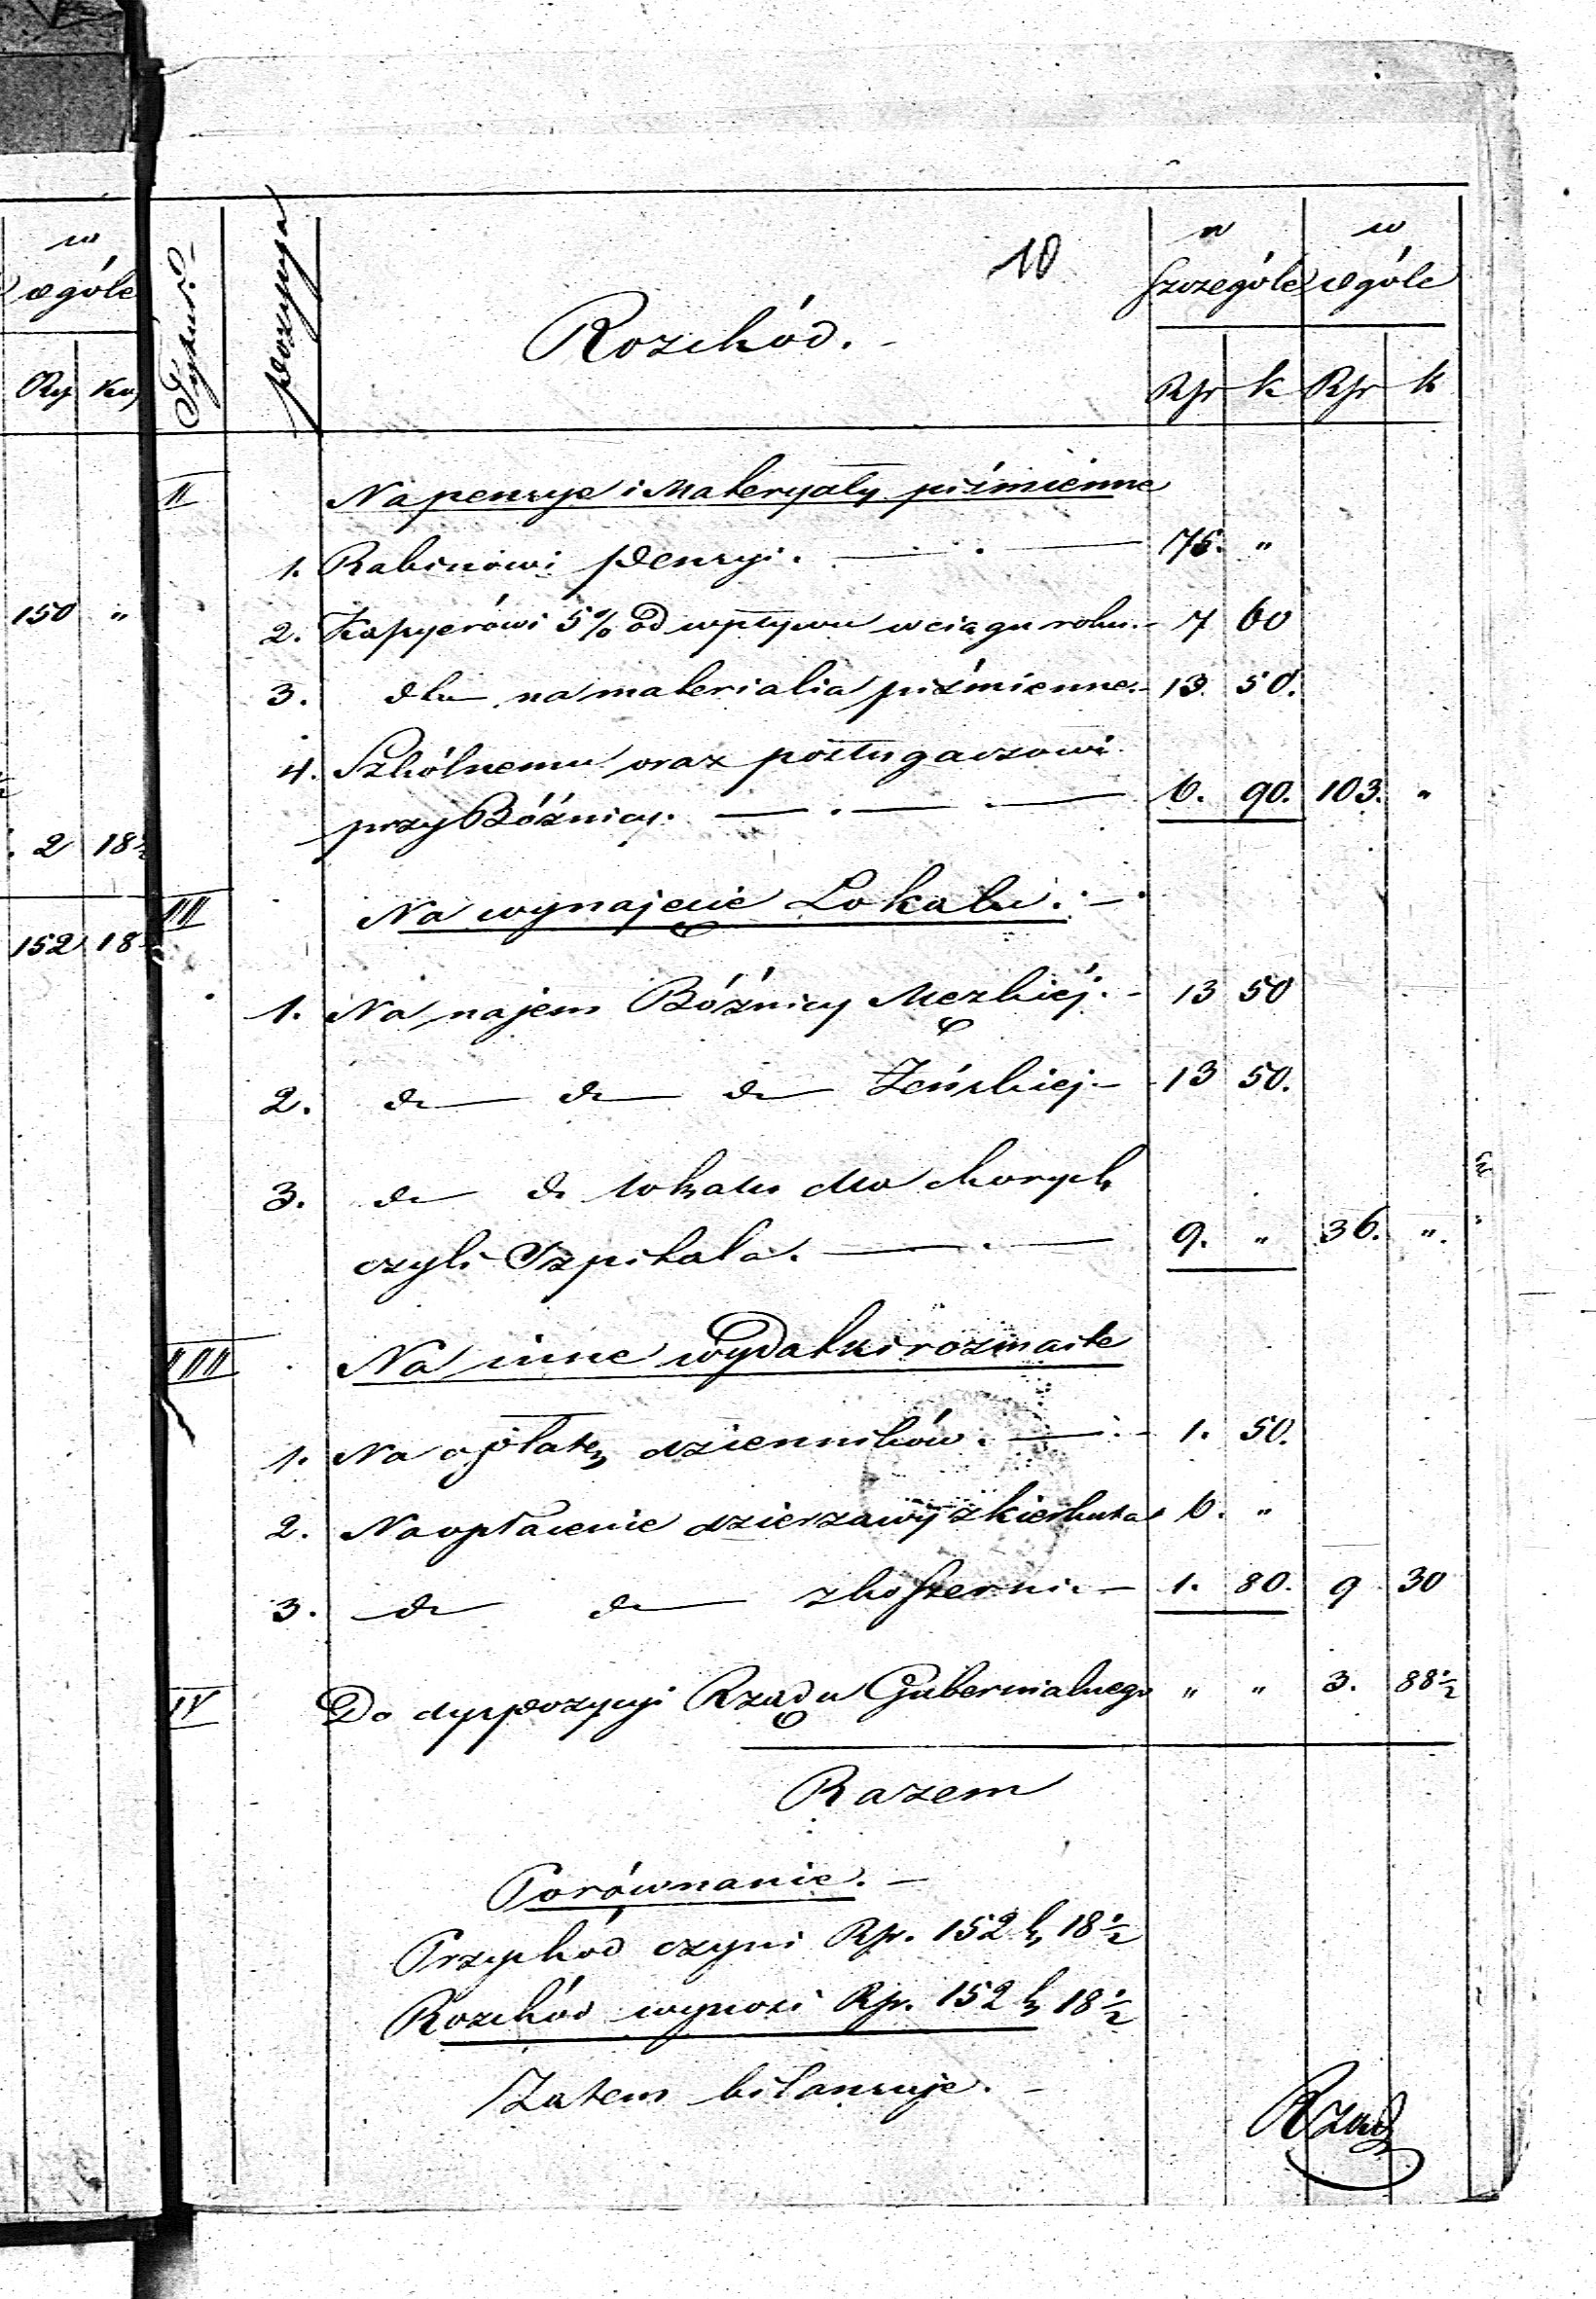 w
ogóle
Rsr Ko
150 "
2 18½
152 18½
10
Tytuł
pozycya
Rozchód.
w szczególe
w ogóle
Rsr k Rsr k
II Na pensye i Materyały piśmienne
1. Rabinowi pensyi. 75. "
2. Kassyerówi 5% od wpływu wciągu roku. 7 60
3. dto na materialia piśmienne. 13. 50.
4. Szkólnemu oraz posługaczowi
przy Bóźnicy. 6. 90. 103. "
III Na wynajęcie Lokalu.
1. Na najem Bóźnicy Męzkiéj. 13 50
2. do do do Żeńskiej 13 50.
3. do do lokalu dla chorych
czyli Szpitala. 9. " 36. ".
IIII Na inne wydatki rozmaite
1. Na opłatę dzienników. 1. 50.
2. Na opłacenie dzierzawy z kierkuta 6. "
3. do do 1. 80. 9 30
IV Do dyspozycyi Rządu Gubernialnego " " 3. 88½
Razem
Porównanie.
Przychód czyni Rsr. 152 k 18½
Rozchód wynosi Rsr. 152 k 18½
Zatem bilansuje.
Rząd